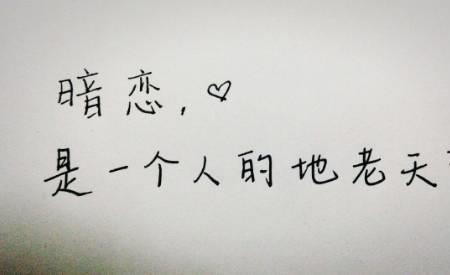 暗恋,♡
是一个人的地老天